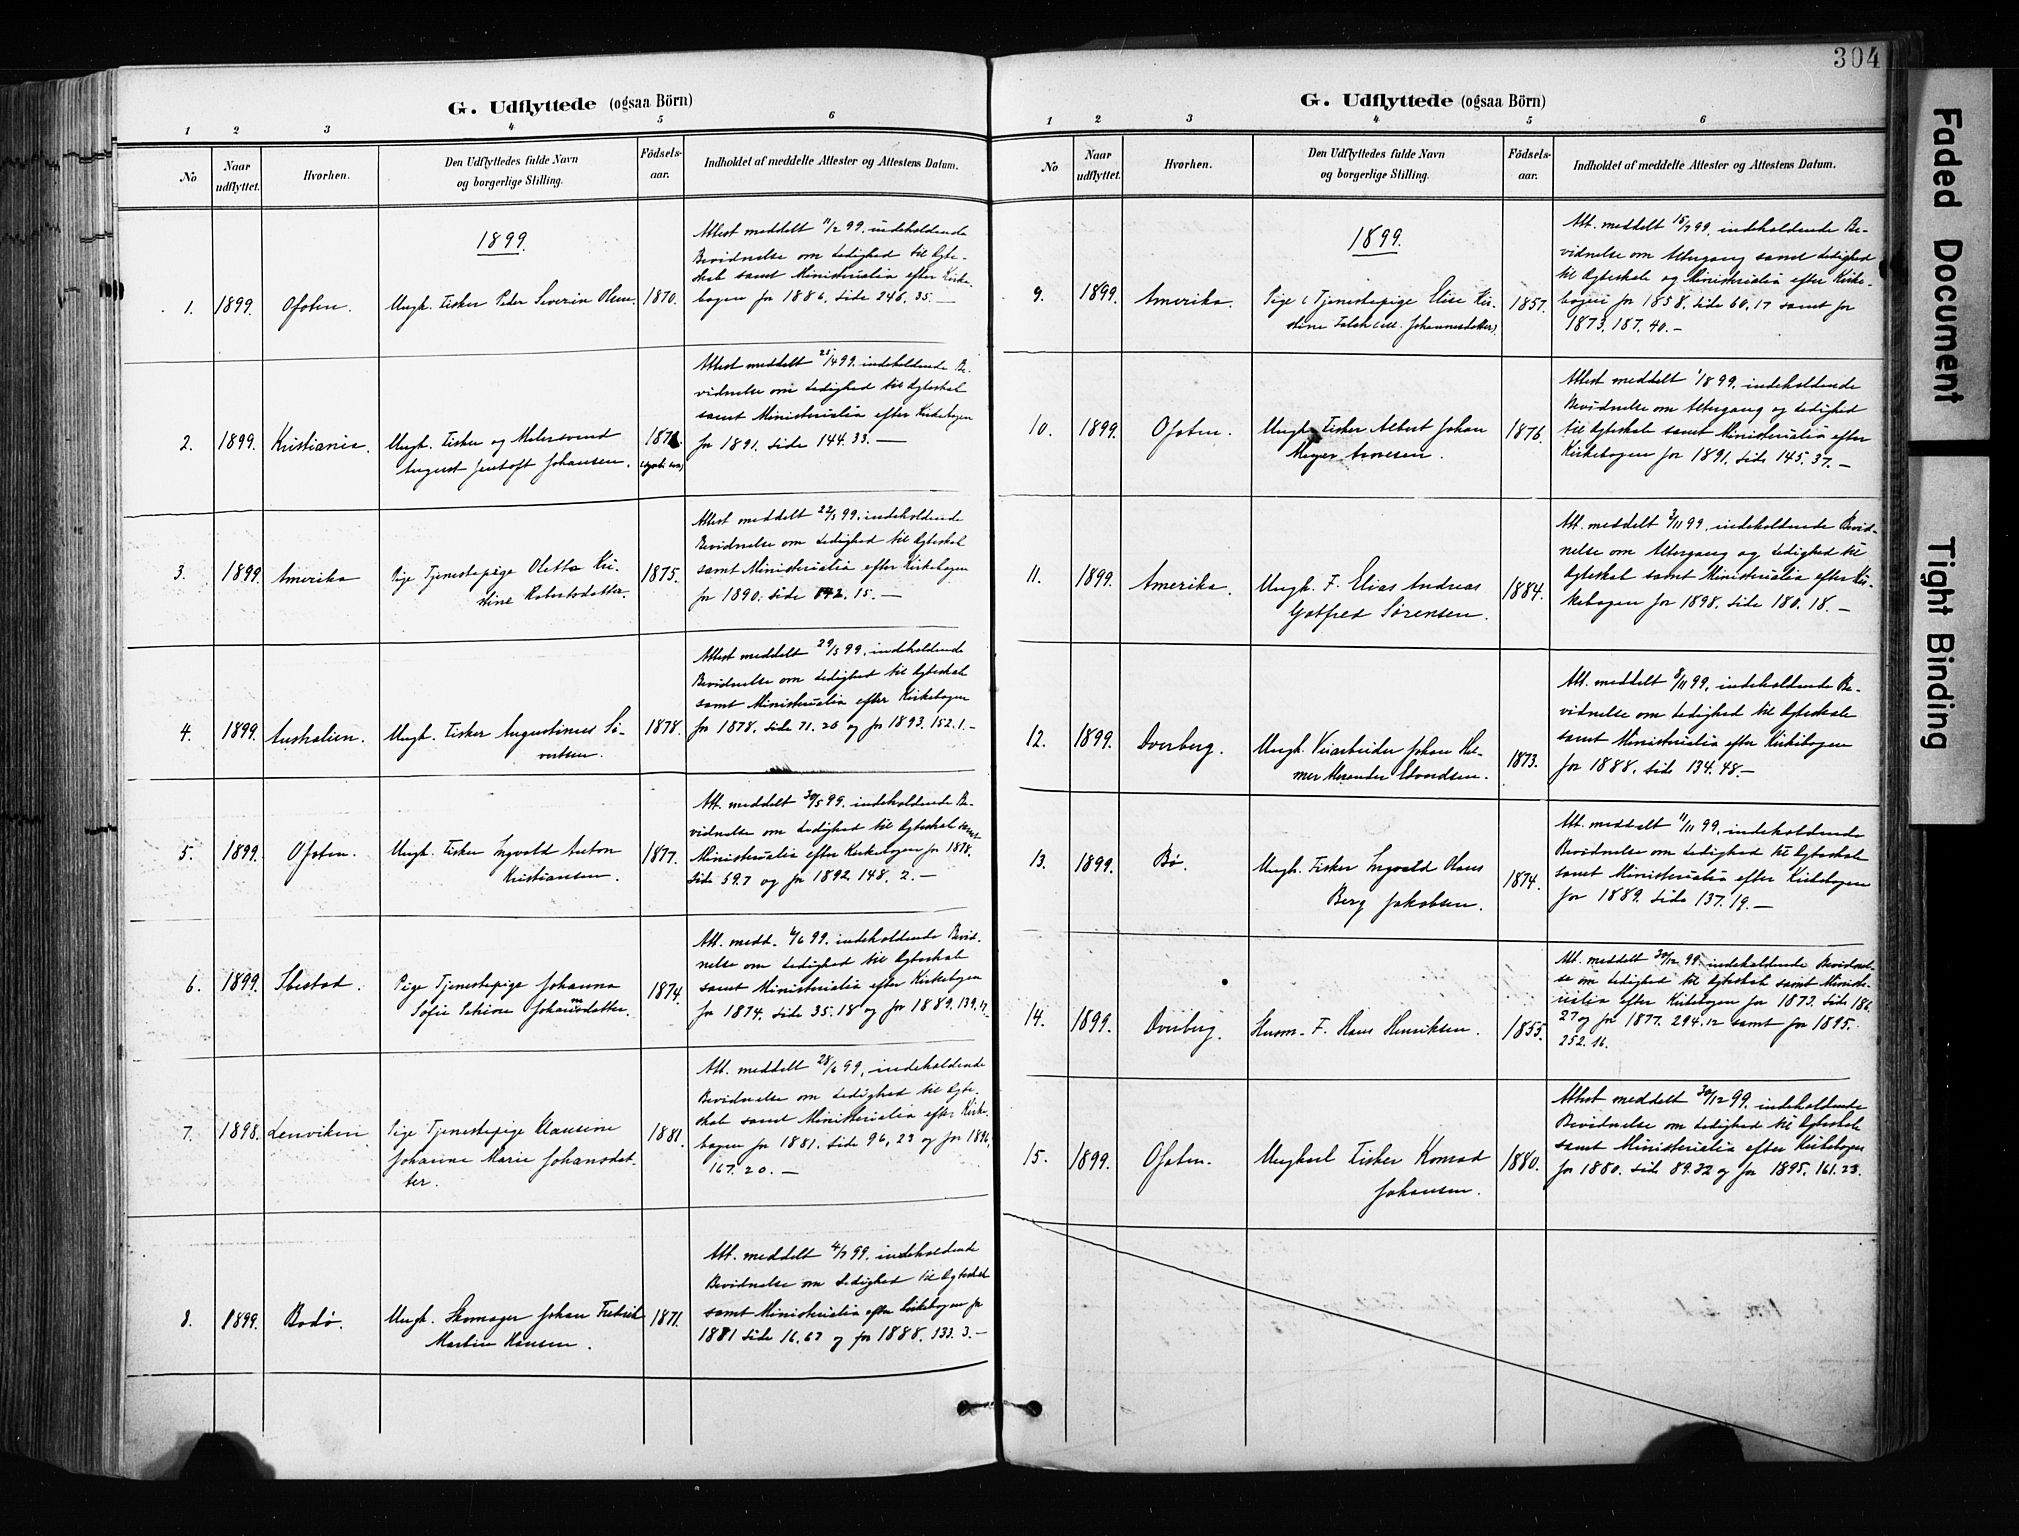 G. Udflyttede (ogsaa Börn)
1 2 3 4 5 6
No
Naar udflyttet.
Hvorhen.
Den Udflyttedes fulde Navn
og borgerlige Stilling.
Fødsels-
aar.
Indholdet af meddelte Attester og Attestens Datum.
1899.
1. 1899. Ofoten. Ungk. Fisker Peder Severin Olsen. 1870.
Attest meddelt 11/2 99. indeholdende
Bevidnelse om Ledighed til Ægte-
skab samt Ministerialia efter Kirke-
bogen for 1886. Side 246. 35. —
2. 1899. Kristiania. Ungk. Fisker og Malersvend
August Jentoft Johansen.
Attest meddelt 25/4 99. indeholdende Be-
vidnelse om Ledighed til Ægteskab
samt Ministerialia efter Kirkebogen
for 1891. Side 144. 33. —
3. 1899. Amerika Pige Tjenestepige Oletta Kri-
stine Robertsdatter. 1875.
Attest meddelt 22/5 99. indeholdende
Bevidnelse om Ledighed til Ægteskab
samt Ministerialia efter Kirkebogen
for 1890. Side 142. 15. —
4. 1899. Australien. Ungk. Fisker Augustinus Si-
vertsen. 1878.
Attest meddelt 29/5 99. indeholdende
Bevidnelse om Ledighed til Ægteskab
samt Ministerialia efter Kirkebogen
for 1878. Side 71. 26 og for 1893. 152. 1. —
5. 1899. Ofoten. Ungk. Fisker Ingvald Anton
Kristiansen. 1877.
Att. meddelt 30/5 99. indeholdende Be-
vidnelse om Ledighed til Ægteskab samt
Ministerialia efter Kirkebogen for 1878.
Side 59. 7 og for 1892. 148. 2. —
6. 1899. Ibestad. Pige Tjenestepige Johanna
Sofie Petrine Johannsdatter. 1874.
Att. medd. 6/6 99. indeholdende Bevid-
nelse om Ledighed til Ægteskab
samt Ministerialia efter Kirkebogen
for 1874. Side 35. 18 og for 1889. 139. 17.
7. 1898. Lenviken Pige Tjenestepige Klausine
Johanne Marie Johansdat-
ter. 1881.
Att. meddelt 28/6 99, indeholdende
Bevidnelse om Ledighed til Ægte-
skab samt Ministerialia efter Kirke-
bogen for 1881. Side 96. 23 og for 1896,
167. 20. —
8. 1899. Bodø. Ungk. Skomager Johan Fredrik
Martin Hansen. 1871.
Att. meddelt 4/7 99. indeholdende
Bevidnelse om Ledighed til Ægteskab
samt Ministerialia efter Kirkebogen for
1871 Side 16. 67 og for 1888. 133. 3. —
304
G. Udflyttede (ogsaa Börn)
1 2 3 4 5 6
No
Naar udflyttet.
Hvorhen.
Den Udflyttedes fulde Navn
og borgerlige Stilling.
Fødsels-
aar.
Indholdet af meddelte Attester og Attestens Datum.
1899.
9. 1899. Amerika. Pige Tjenestepige Elise Kir-
stine Johannesdatter). 1857.
Att. meddelt 15/7 99. indeholdende Be-
vidnelse om Altergang samt Ledighed
til Ægteskab og Ministerialia efter Kirke-
bogen for 1858. Side 60. 17 samt for
1873. 187. 40. —
10. 1899. Ofoten. Ungk. Fisker Albert Johan
Meyer Arnesen. 1876.
Attest meddelt 1/8 99. indeholdende
Bevidnelse om Altergang og Ledighed
til Ægteskab samt Ministerialia efter
Kirkebogen for 1891. Side 145. 37. —
11. 1899. Amerika. Ungk. F. Elias Andreas
Gotfred Sørensen. 1884.
Att. meddelt 3/11 99. indeholdende Bevid-
nelse om Altergang og Ledighed til
Ægteskab samt Ministerialia efter Kir-
kebogen for 1898. Side 180. 18. —
12. 1899. Dverberg. Ungk. Veiarbeider Johan Hel-
mer Alexander Edvardsen. 1873.
Att. meddelt 8/11 99. indeholdende Be-
vidnelse om Ledighed til Ægteskab
samt Ministerialia efter Kirkebogen
for 1888. Side 134. 48. —
13. 1899. Bø. Ungk. Fisker Ingvald Claus
Berg Jakobsen. 1874.
Att. meddelt 11/11 99. indeholdende
Bevidnelse om Ledighed til Ægteskab
samt Ministerialia efter Kirkebogen
for 1889. Side 137. 19. —
14. 1899. Dverberg. Husm. F. Hans Henriksen. 1855.
Att. meddelt 30/12 99. indeholdende Bevidnel-
se om Ledighed til Ægteskab samt Ministe-
rialia efter Kirkebogen for 1873. Side 186.
27 og for 1877. 294. 12 samt for 1895.
252. 16.
15. 1899. Ofoten. Ungkarl Fisker Konrad
Johansen. 1880.
Attest meddelt 30/12 99. indeholdende
Bevidnelse om Ledighed til Ægteskab
samt Ministerialia efter Kirkebogen
for 1880. Side 89. 32 og for 1895. 161. 23.
Faded Document
Tight Binding